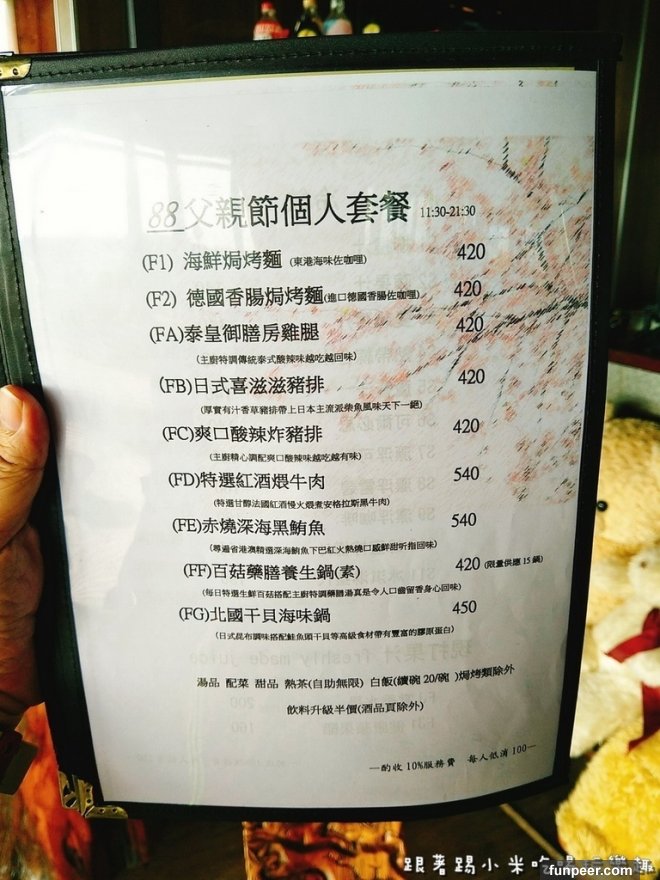 88父親節個人套餐 11:30-21:30
(F1) 海鮮焗烤麵 (東港海味佐咖哩) 420
(F2) 德國香腸焗烤麵(進口德國香腸佐咖哩) 420
(FA)泰皇御膳房雞腿 420
(主廚特調傳統泰式酸辣味越吃越回味)
(FB)日式喜滋滋豬排 420
(厚實有汁香草豬排帶上日本主流派柴魚風味天下一絕)
(FC)爽口酸辣炸豬排 420
(主廚精心調配爽口酸辣味越吃越有味)
(FD)特選紅酒煨牛肉 540
(特選甘醇法國紅酒慢火煨煮安格拉斯黑牛肉)
(FE)赤燒深海黑鮪魚 540
(尋遍省港澳精選深海鮪魚下巴紅火熱燒口感鮮甜听指回味)
(FF)百菇藥膳養生鍋(素) 420 (限量供應 15 鍋)
(每日特選生鮮百菇搭配主廚特調藥膳湯真是令人口齒留香身心回味)
(FG)北國干貝海味鍋 450
(日式昆布調味搭配鮭魚頭干貝等高級食材帶有豐富的膠原蛋白)
現打果汁 freshly made juice
湯品 配菜 甜品 熱茶(自助無限) 白飯(續碗 20/碗 )焗烤類除外
200
飲料升級半價(酒品頁除外)
160
—酌收 10%服務費 每人低消 100—
跟著踢小米吃喝玩樂趣
funpeer.com